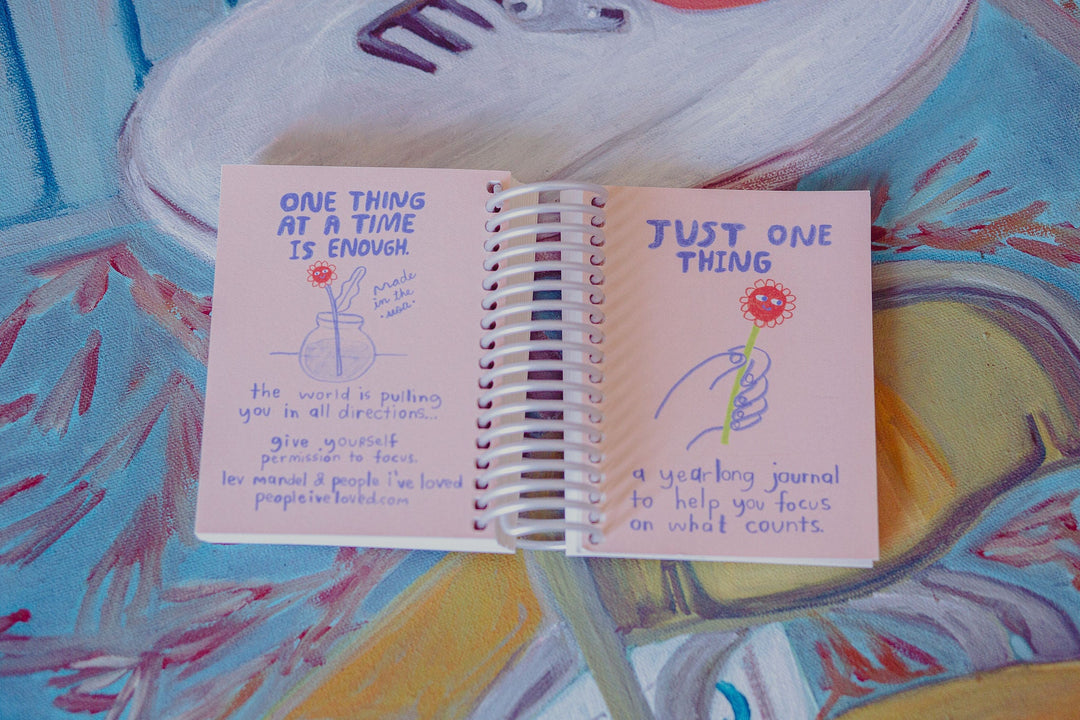 ONE THING
AT A TIME
IS ENOUGH.
made
in the
usa.
the world is pulling
you in all directions...
give yourself
permission to focus.
lev mandel & people i've loved
peopleiveloved.com
JUST ONE
THING
a yearlong journal
to help you focus
on what counts.